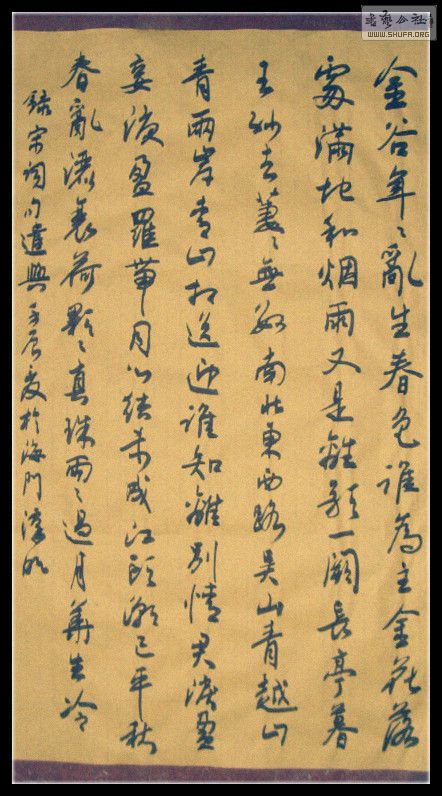 金谷年〻亂生春色誰為主金花落
處滿地和烟雨又是離歌一闕長亭暮
王孫去萋〻無數南北東西路吳山青越山
青兩岸青山相送迎誰知離別情君淚盈
妾淚盈羅帶同心結未成江頭潮已平秋
春亂灑衰荷顆〻真珠雨〻過月華生冷
錄宋詞句遣興壬辰夏於海門
书艺公社
WWW.SHUFA.ORG